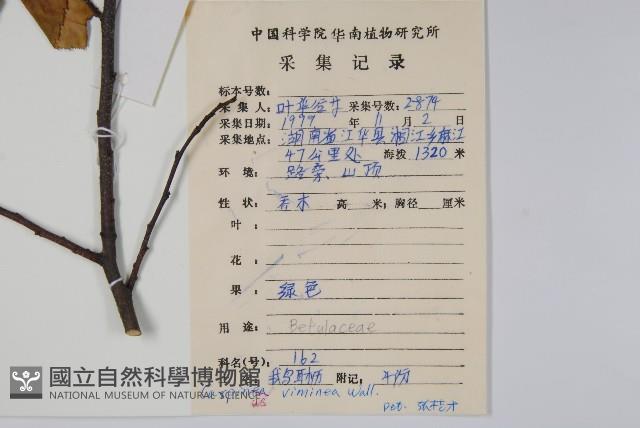 中国科学院华南植物研究所
采集记录
标本号数:
采集人: 叶华谷 采集号数: 2874
采集日期: 1999 年 11 月 2 日
采集地点: 湖南省江华县湘江乡
47公里处 海拨 1320 米
环境: 山顶
性状: 乔木 高 米; 胸径 厘米
叶:
花:
果: 绿色
用途: Betulaceae
科名(号): 162
附记:
viminea Wall.
Det.
國立自然科學博物館
NATIONAL MUSEUM OF NATURAL SCIENCE